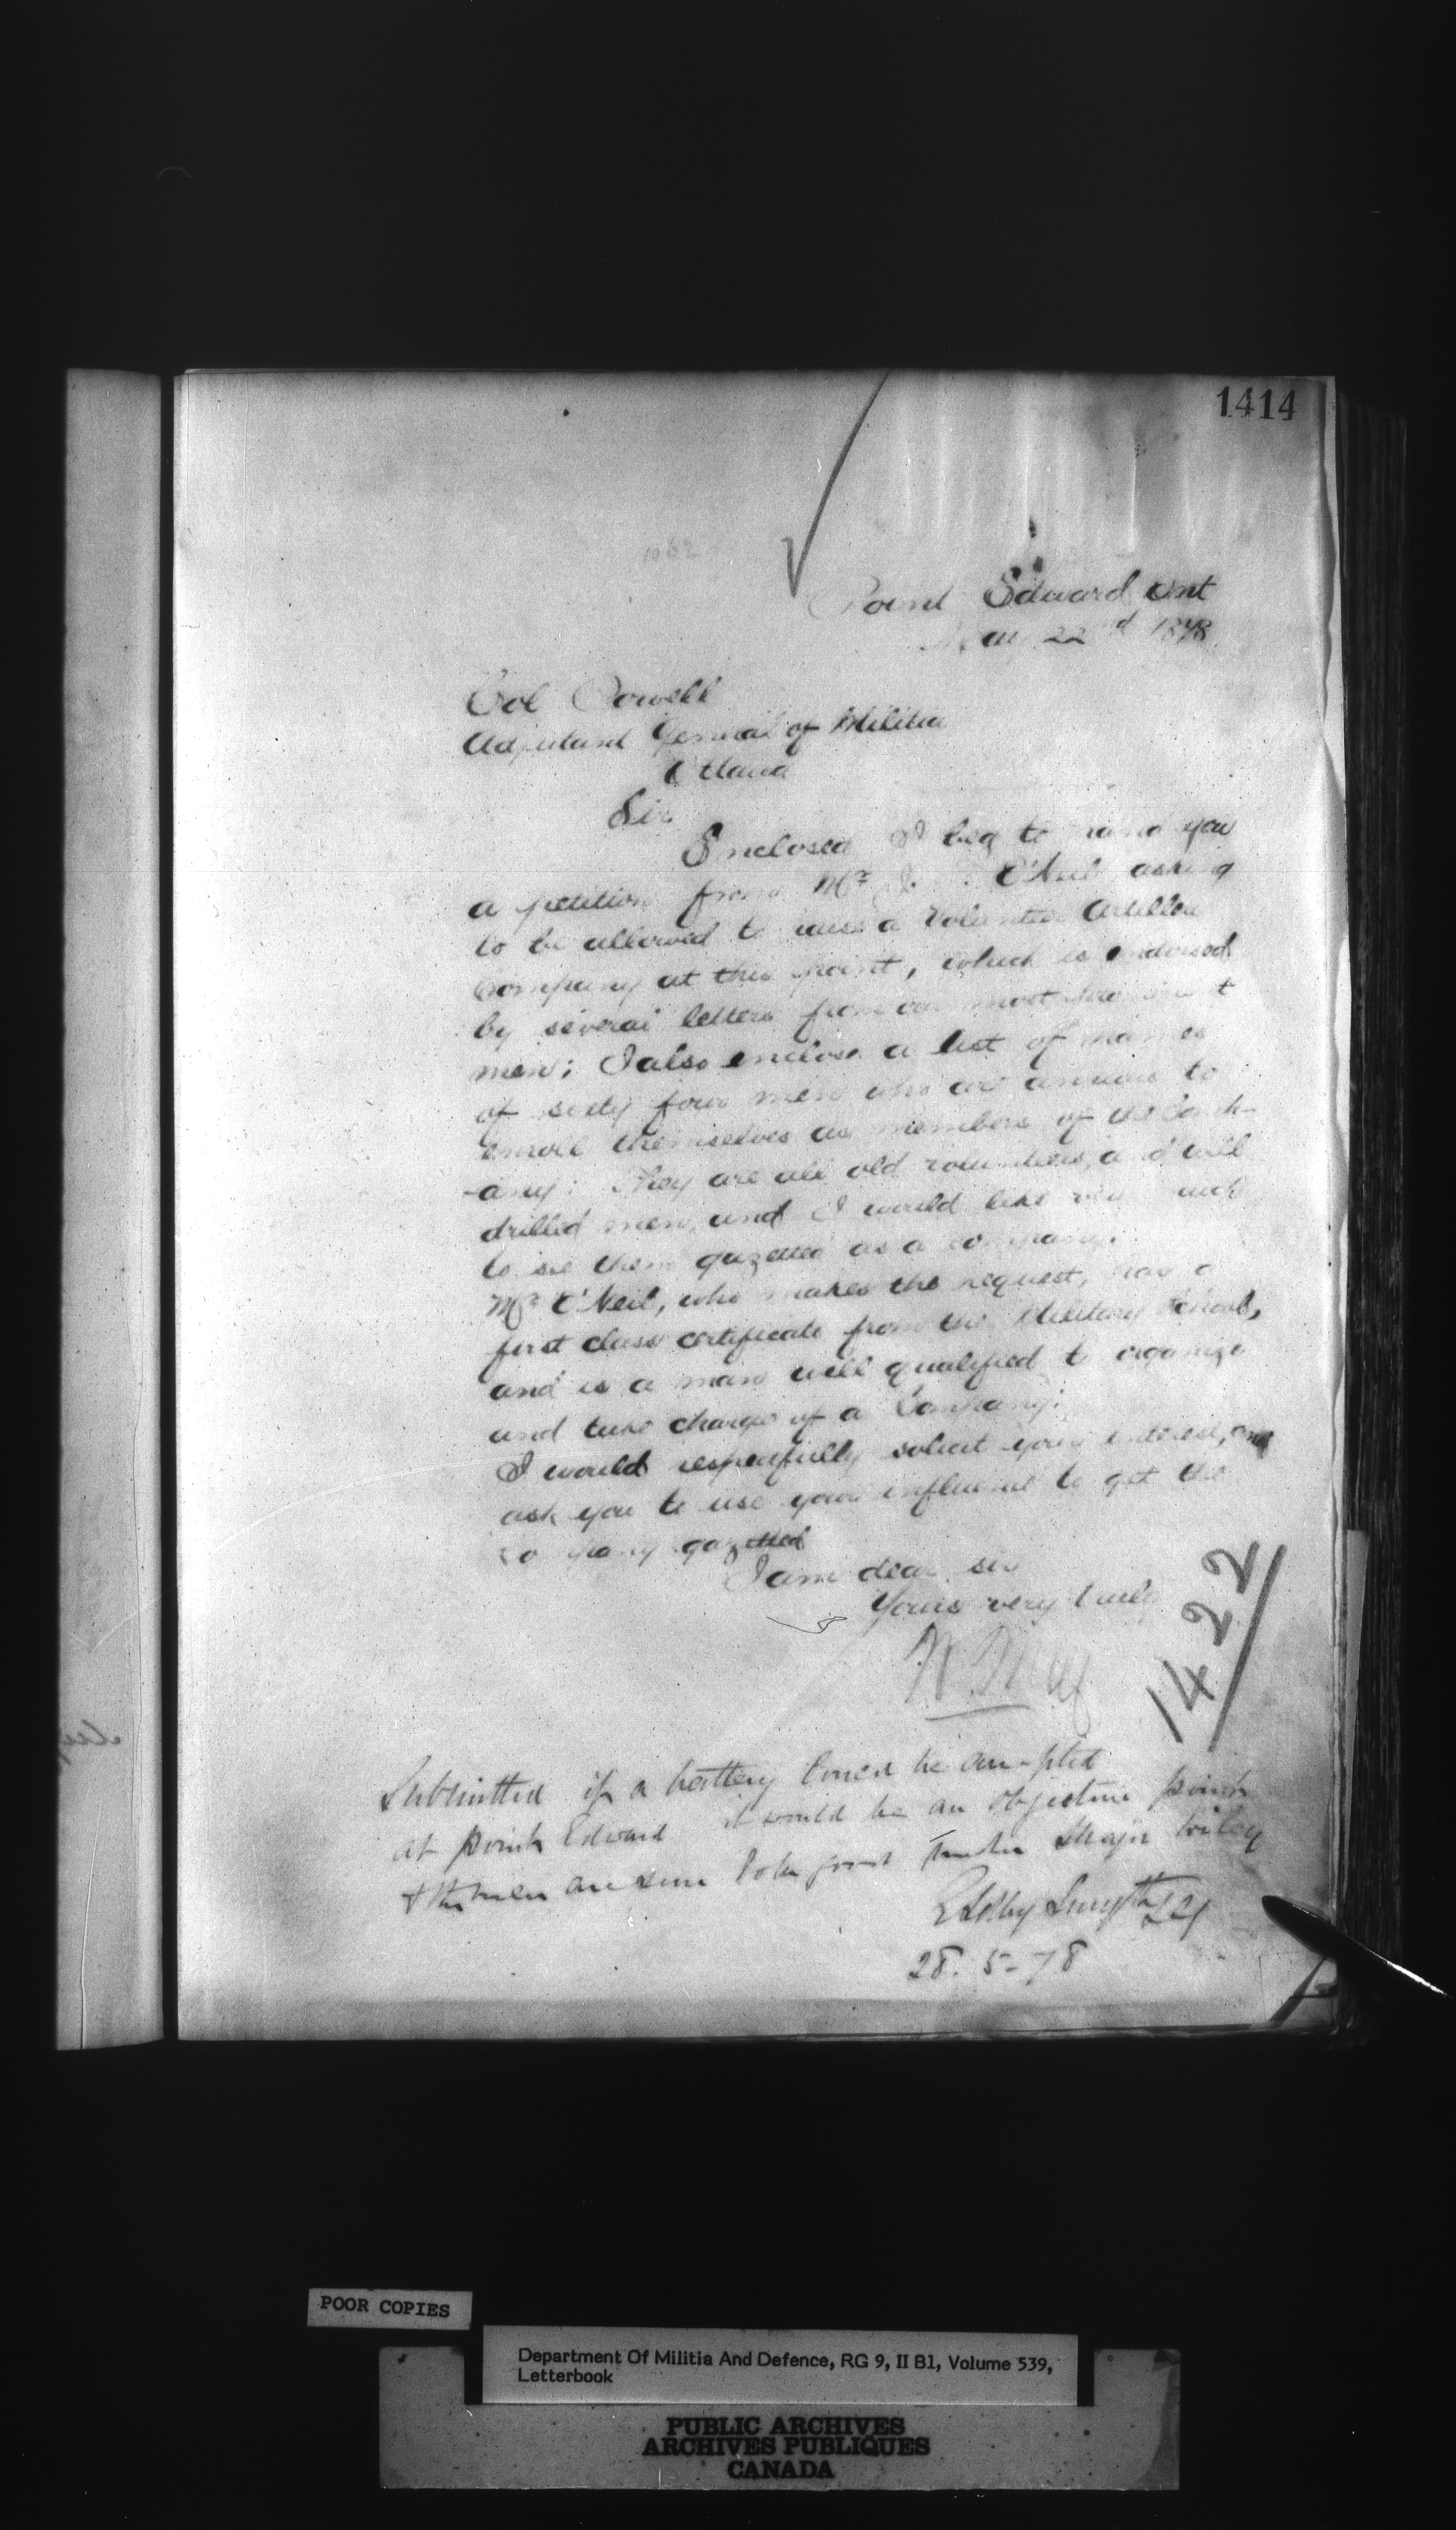 1414
1062
Point Edward Ont
May 22nd 1878
Col Powell
Adjutant General of Militia
Ottawa
Sir
Enclosed I beg to hand you
a petition from Mr J. O'Neil asking
to be allowed to raise a Volunteer Artillery
Company at this point, which is endorsed
by several letters from our most prominent
men; I also enclose a list of names
of sixty four men who are anxious to
enroll themselves as members of the Comp-
-any: They are all old volunteers, and well
drilled men, and I would like very much
to see them gazetted as a company.
Mr O'Neil, who makes the request, has a
first class certificate from the Military School,
and is a man well qualified to organize
and take charge of a Company:
I would respectfully solicit your interest, and
ask you to use your influence to get the
company gazetted
I am dear sir
Yours very truly
1422
Submitted if a battery could be accepted
at point Edward it would be an objective point
& the men are some
28. 5-78
POOR COPIES
Department Of Militia And Defence, RG 9, II B1, Volume 539,
Letterbook
PUBLIC ARCHIVES
ARCHIVES PUBLIQUES
CANADA